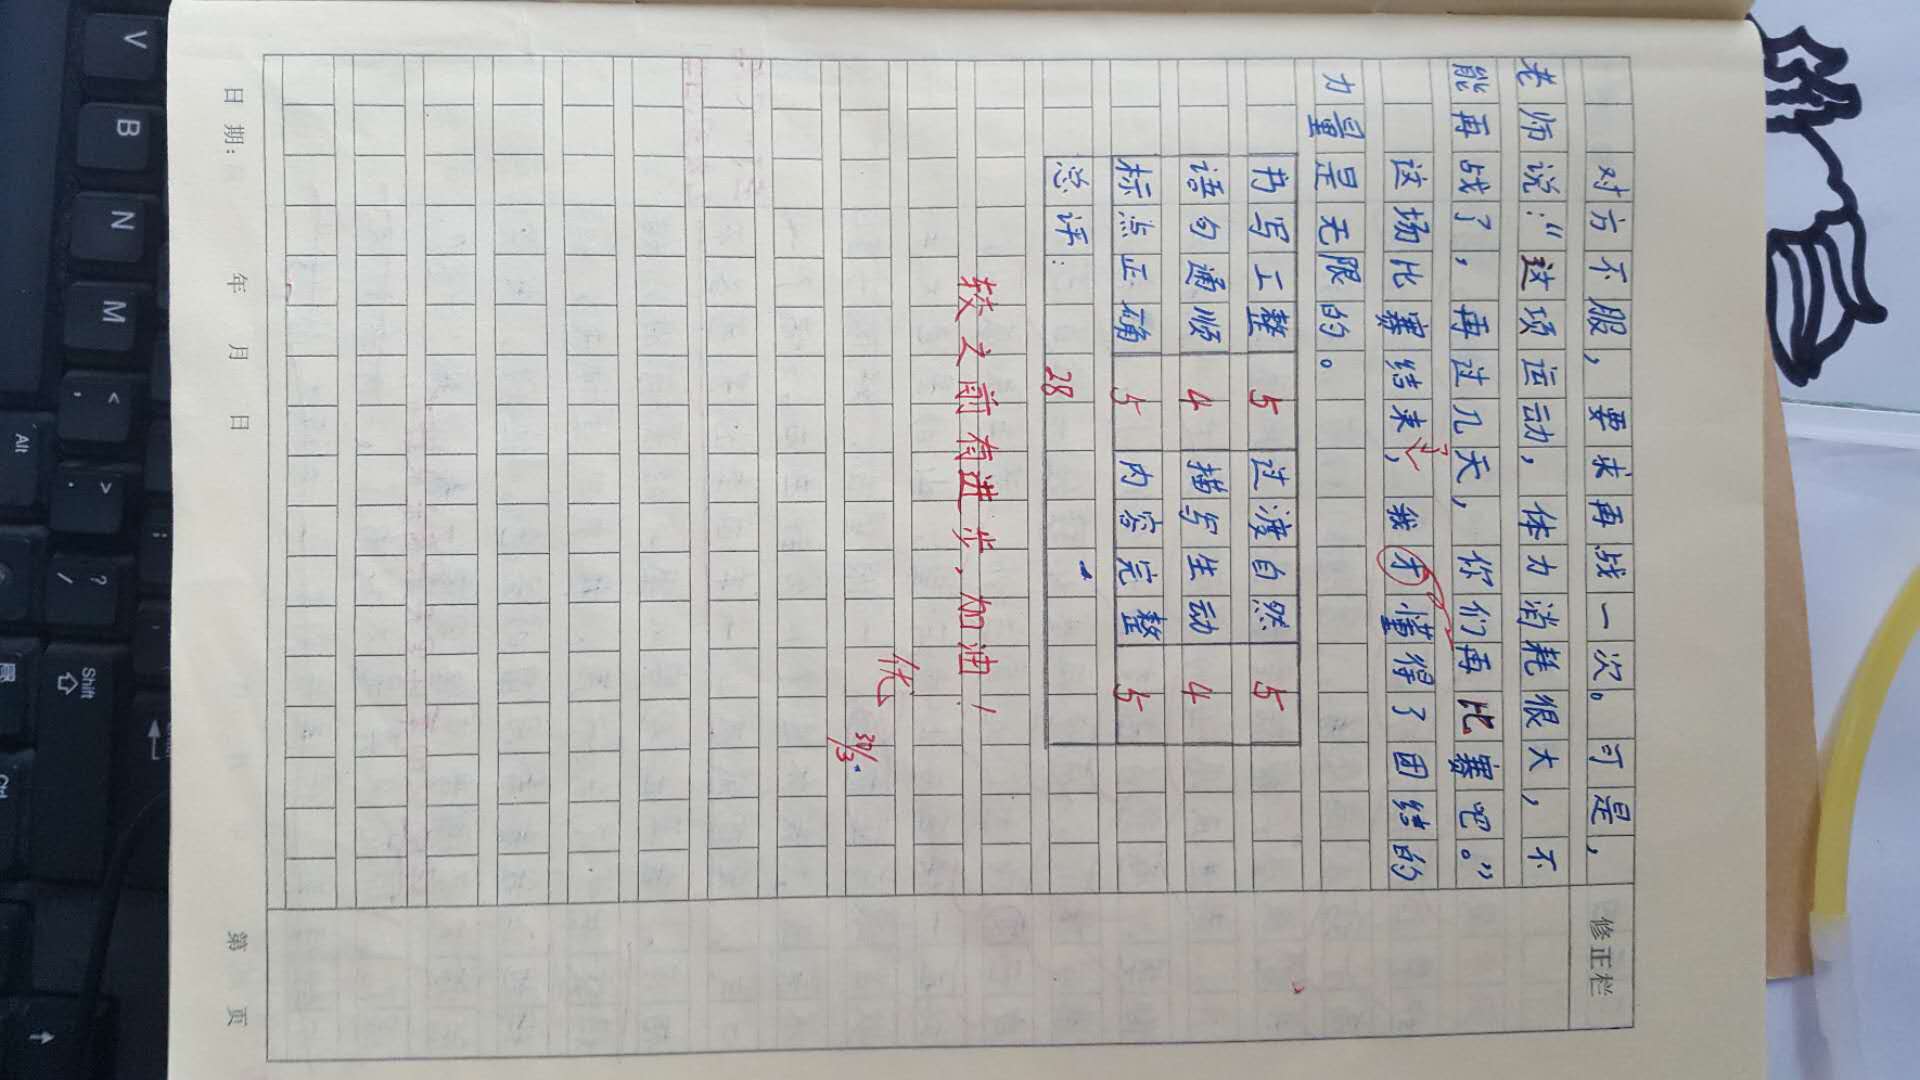 对方不服，要求再战一次。可是，
老师说：“这项运动，体力消耗很大，不
能再战了，再过几天，你们再比赛吧。”
这场比赛结束，了我才懂得了团结的
力量是无限的。
书写工整 5 过渡自然 5
语句通顺 4 描写生动 4
标点正确 5 内容完整 5
总评： 28
较之前有进步，加油！
优
30/3
修正栏
日期： 年 月 日 第 页
V
B
N
M
<
,
>
.
?
/
Alt
Shift
Ctrl